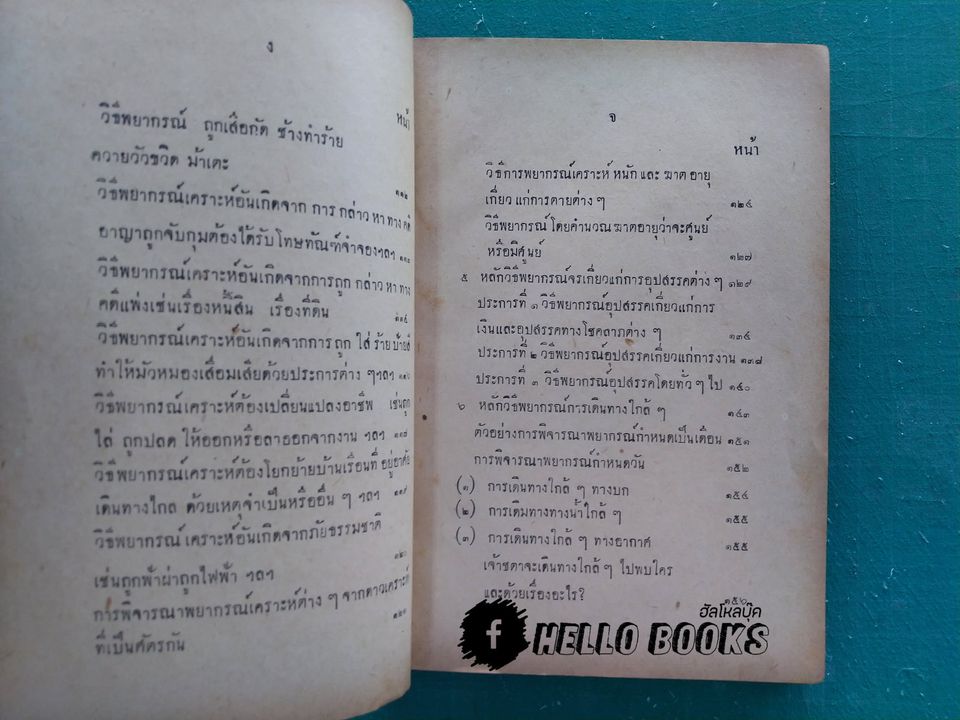 ง
หน้า
วิธีพยากรณ์ ถูกเสือกัด ช้างทำร้าย
ควายวัวขวิด ม้าเตะ
๑๑๒
วิธีพยากรณ์เคราะห์อันเกิดจาก การ กล่าว หา ทาง คดี
อาญาถูกจับกุมต้องได้รับโทษทัณฑ์จำจองฯลฯ
วิธีพยากรณ์เคราะห์อันเกิดจากการถูก กล่าว หา ทาง
คดีแพ่งเช่นเรื่องหนี้สิน เรื่องที่ดิน
วิธีพยากรณ์เคราะห์อันเกิดจากการ ถูก ใส่ ร้าย ป้ายสี
ทำให้มัวหมองเสื่อมเสียด้วยประการต่าง ๆฯลฯ
วิธีพยากรณ์เคราะห์ต้องเปลี่ยนแปลงอาชีพ เช่นถูก
ไล่ ถูกปลด ให้ออกหรือลาออกจากงาน ฯลฯ
วิธีพยากรณ์เคราะห์ต้องโยกย้ายบ้านเรือนที่ อยู่อาศัย
เดินทางไกล ด้วยเหตุจำเป็นหรืออื่น ๆ ฯลฯ
วิธีพยากรณ์ เคราะห์อันเกิดจากภัยธรรมชาติ
๑๒๐
เช่นถูกฟ้าผ่าถูกไฟฟ้า ฯลฯ
การพิจารณาพยากรณ์เคราะห์ต่าง ๆ จากดาวเคราะห์
ที่เป็นศัตรกัน
จ
หน้า
วิธีการพยากรณ์เคราะห์ หนัก และ ฆาต อายุ
เกี่ยว แก่การตายต่าง ๆ ๑๒๔
วิธีพยากรณ์ โดยคำนวณ ฆาตอายุว่าจะศูนย์
หรือมิศูนย์ ๑๒๗
๕ หลักวิธีพยากรณ์จรเกี่ยวแก่การอุปสรรคต่าง ๆ ๑๒๙
ประการที่ ๑ วิธีพยากรณ์อุปสรรคเกี่ยวแก่การ
เงินและอุปสรรคทางโชคลาภต่าง ๆ ๑๓๔
ประการที่ ๒ วิธีพยากรณ์อุปสรรคเกี่ยวแก่การงาน ๑๓๘
ประการที่ ๓ วิธีพยากรณ์อุปสรรคโดยทั่ว ๆ ไป ๑๔๐
๖ หลักวิธีพยากรณ์การเดินทางใกล้ ๆ ๑๔๓
ตัวอย่างการพิจารณาพยากรณ์กำหนดเป็นเดือน ๑๕๑
การพิจารณาพยากรณ์กำหนดวัน ๑๕๒
(๑) การเดินทางใกล้ ๆ ทางบก ๑๕๔
(๒) การเดิมทางทางน้ำใกล้ ๆ ๑๕๕
(๓) การเดินทางใกล้ ๆ ทางอากาศ ๑๕๕
เจ้าชตาจะเดินทางใกล้ ๆ ไปพบใคร
และด้วยเรื่องอะไร?
ฮัลโหลบุ๊ค
f HELLO BOOKS